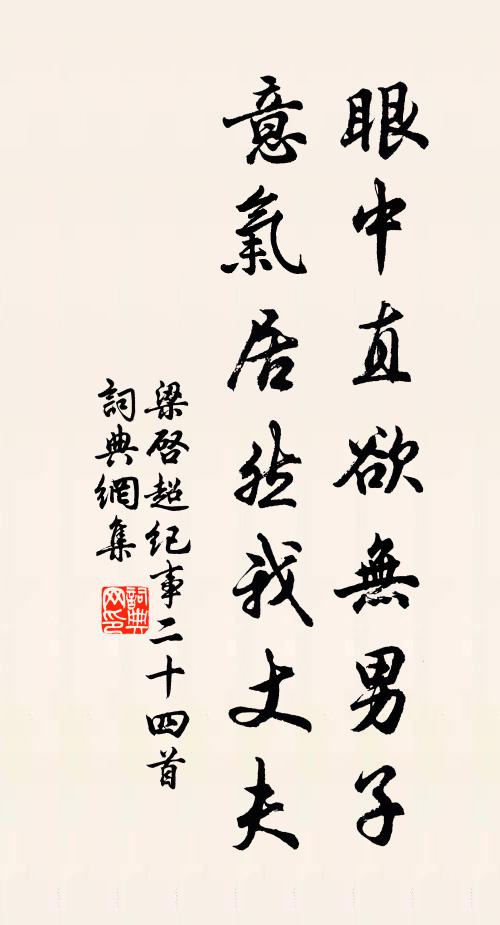 眼中直欲無男子
意氣居然我丈夫
梁啓超纪事二十四首
詞典網集
詞典网印